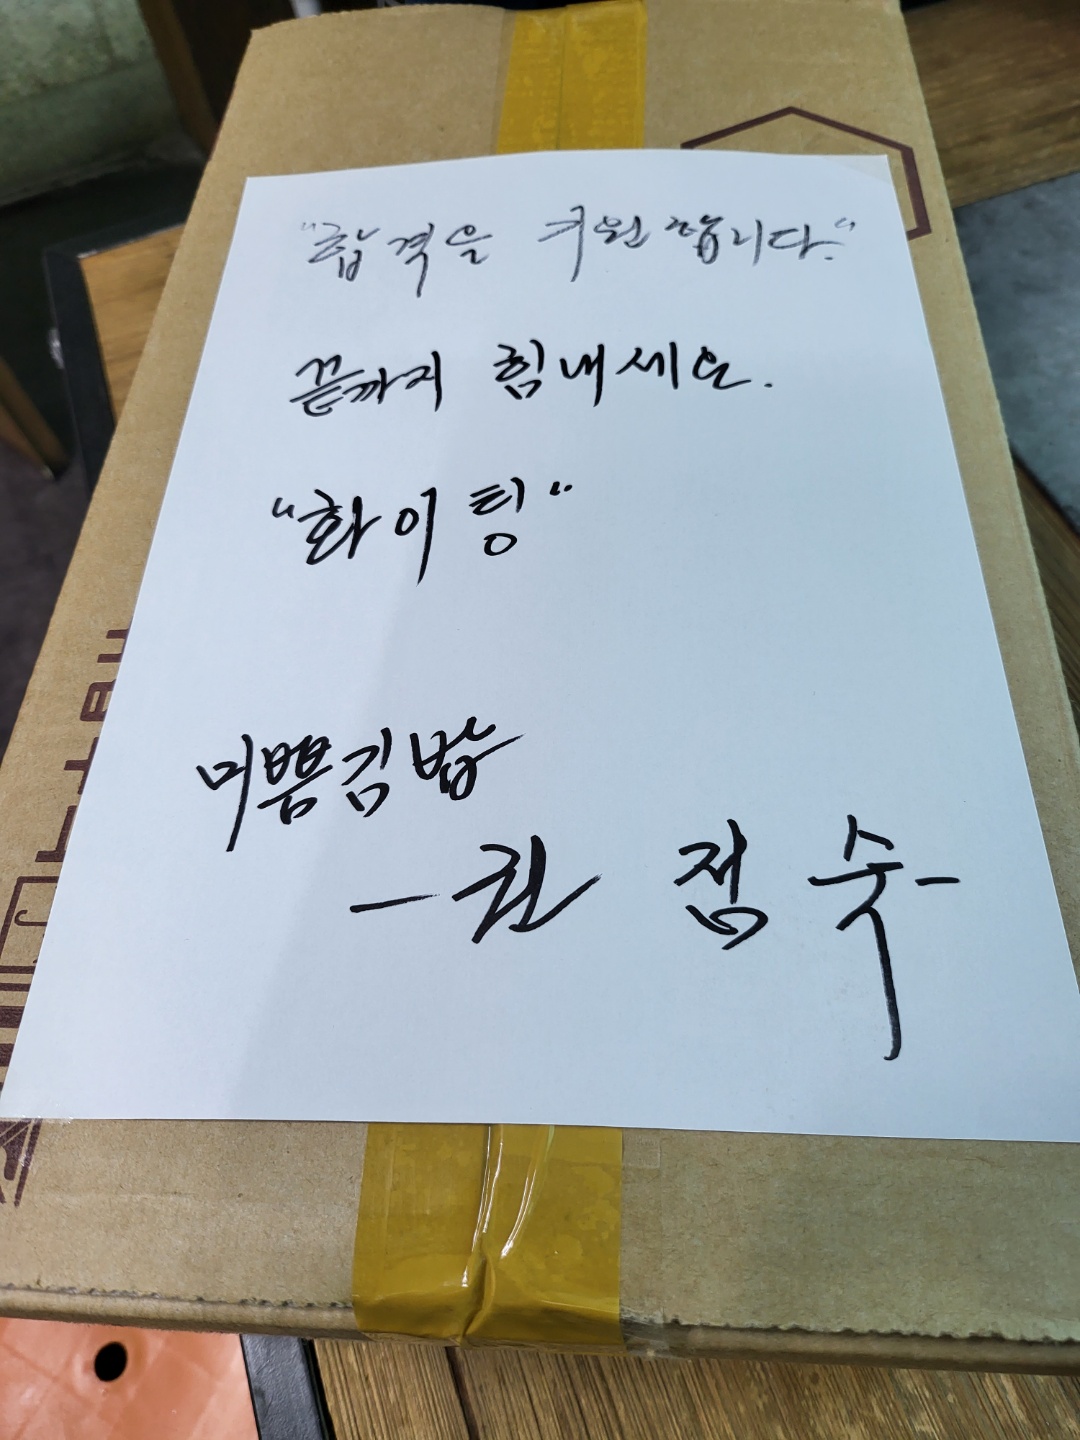 "합격을 기원합니다."
끝까지 힘내세요.
"화이팅"
미쁨김밥
-권 점숙-